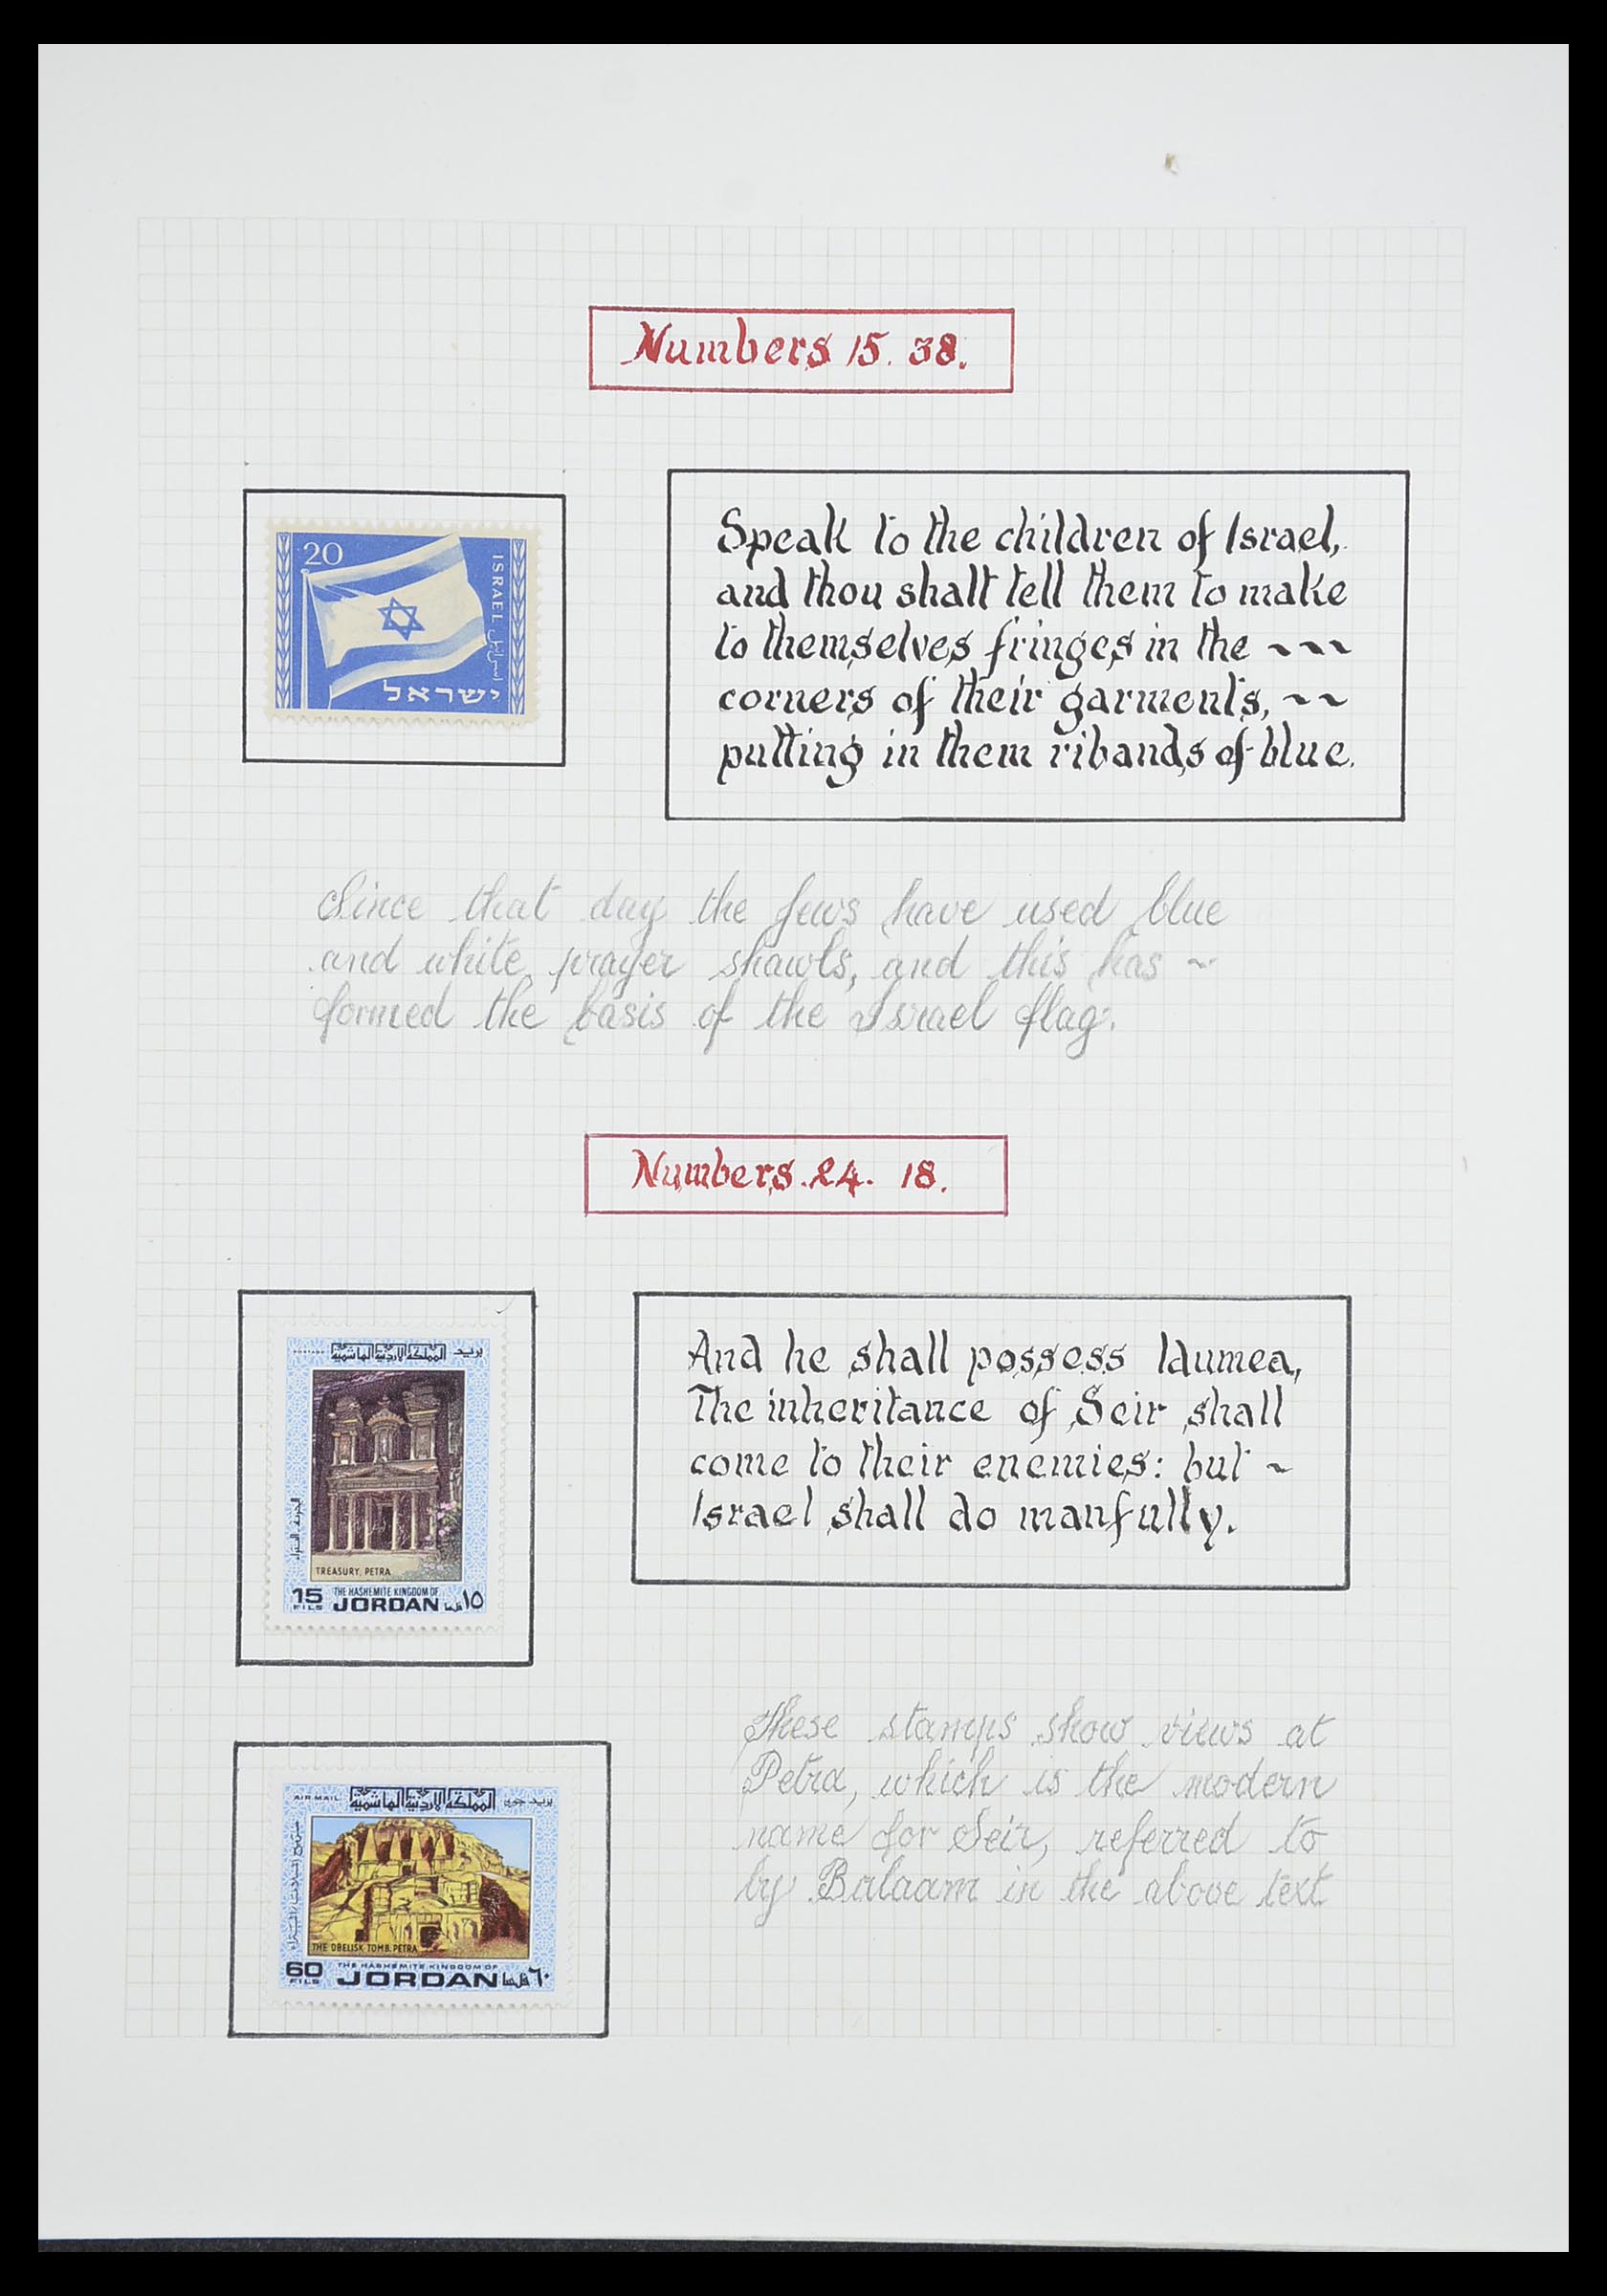 Numbers 15. 38.
20
ISRAEL
اسرائيل
ישראל
Speak to the children of Israel,
and thou shalt tell them to make
to themselves fringes in the ~~~
corners of their garments, ~~
putting in them ribands of blue.
Since that day the Jews have used blue
and white prayer shawls, and this has ~
formed the basis of the Israel flag.
Numbers. 24. 18.
POSTAGE المملكة الاردنية الهاشمية بريد
TREASURY, PETRA
15 THE HASHEMITE KINGDOM OF ١٥
FILS JORDAN فلسا
And he shall possess Idumea,
The inheritance of Seir shall
come to their enemies: but ~
Israel shall do manfully.
AIR MAIL المملكة الاردنية الهاشمية بريد جوي
THE OBELISK TOMB, PETRA
60 THE HASHEMITE KINGDOM OF
FILS JORDAN فلسا ٦٠
These stamps show views at
Petra, which is the modern
name for Seir, referred to
by Balaam in the above text